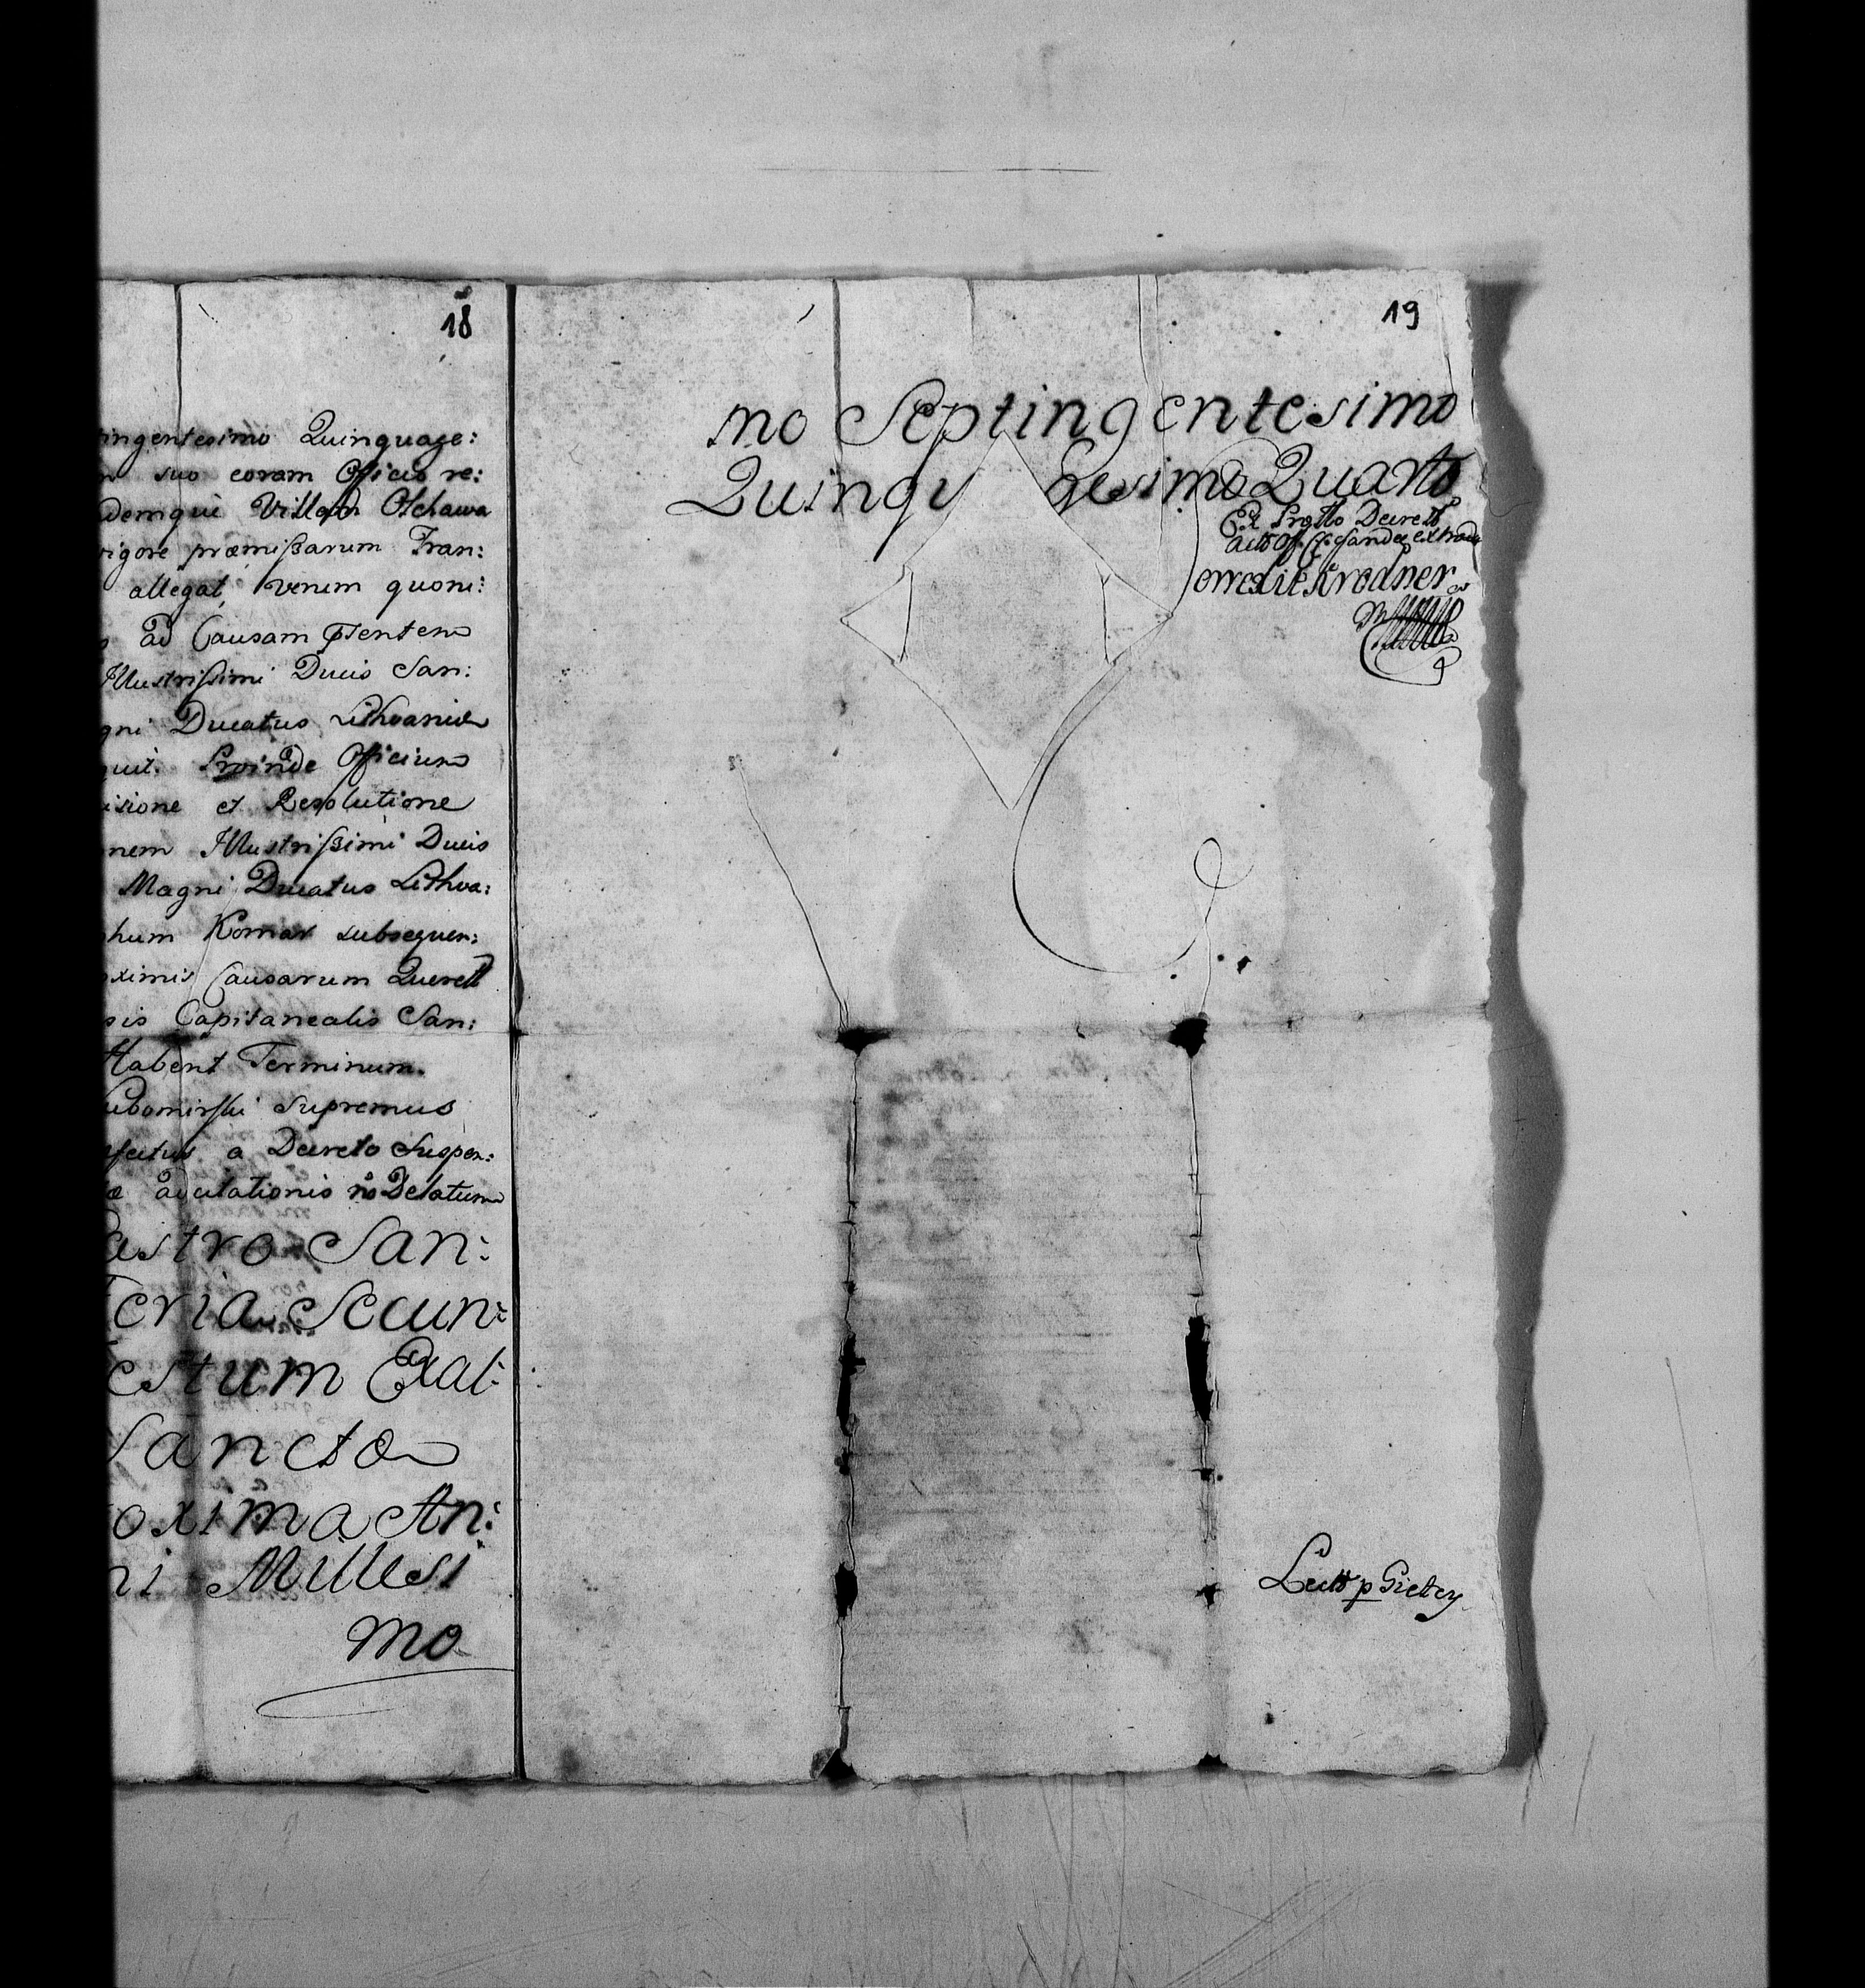 18
ingentesimo Quinquage:
suo coram Officio re:
demque Villam Olchawa
vigore præmißarum Tran:
allegat, verum quoni:
ad Causam pntem
Illustrißimi Ducis San:
gni Ducatus Lithvaniæ
quit. Proinde Officium
isione et Resolutione
nem Illustrißimi Ducis
Magni Ducatus Lithva:
phum Komar subsequen:
oximis Causarum Querell
sis Capitanealis San:
Habent Terminum.
ubomirski Supremus
a Decreto Suspen:
no Delatum
astro San:
Feria Secun:
estum Exal:
Sancto
oxima An:
ni Millesi
mo
19
mo Septingentesimo
Quinqu gesimo Quarto
Ex Protto Decrett
extradit
Correxit Krodner
Lect p Gietcy